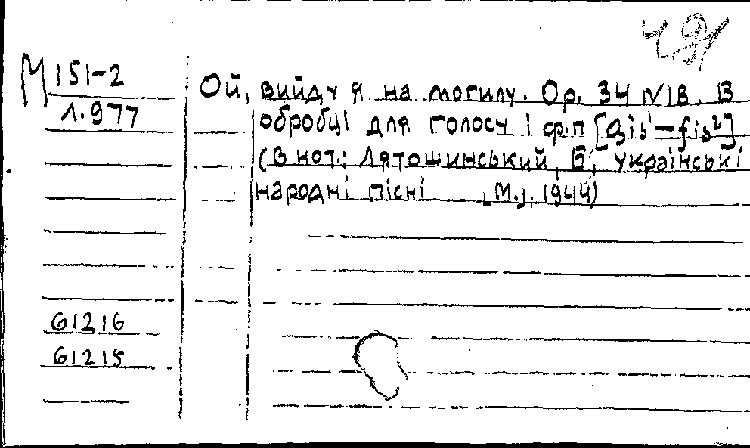 М 151-2
Л.977
Ой, вийду я на могилу. Op. 34 №18. В
обробці для голосу і ф.п [gis¹–fis²]
(В нот.: Лятошинський, Б, українські
народні пісні М.], 1944)
61216
61215